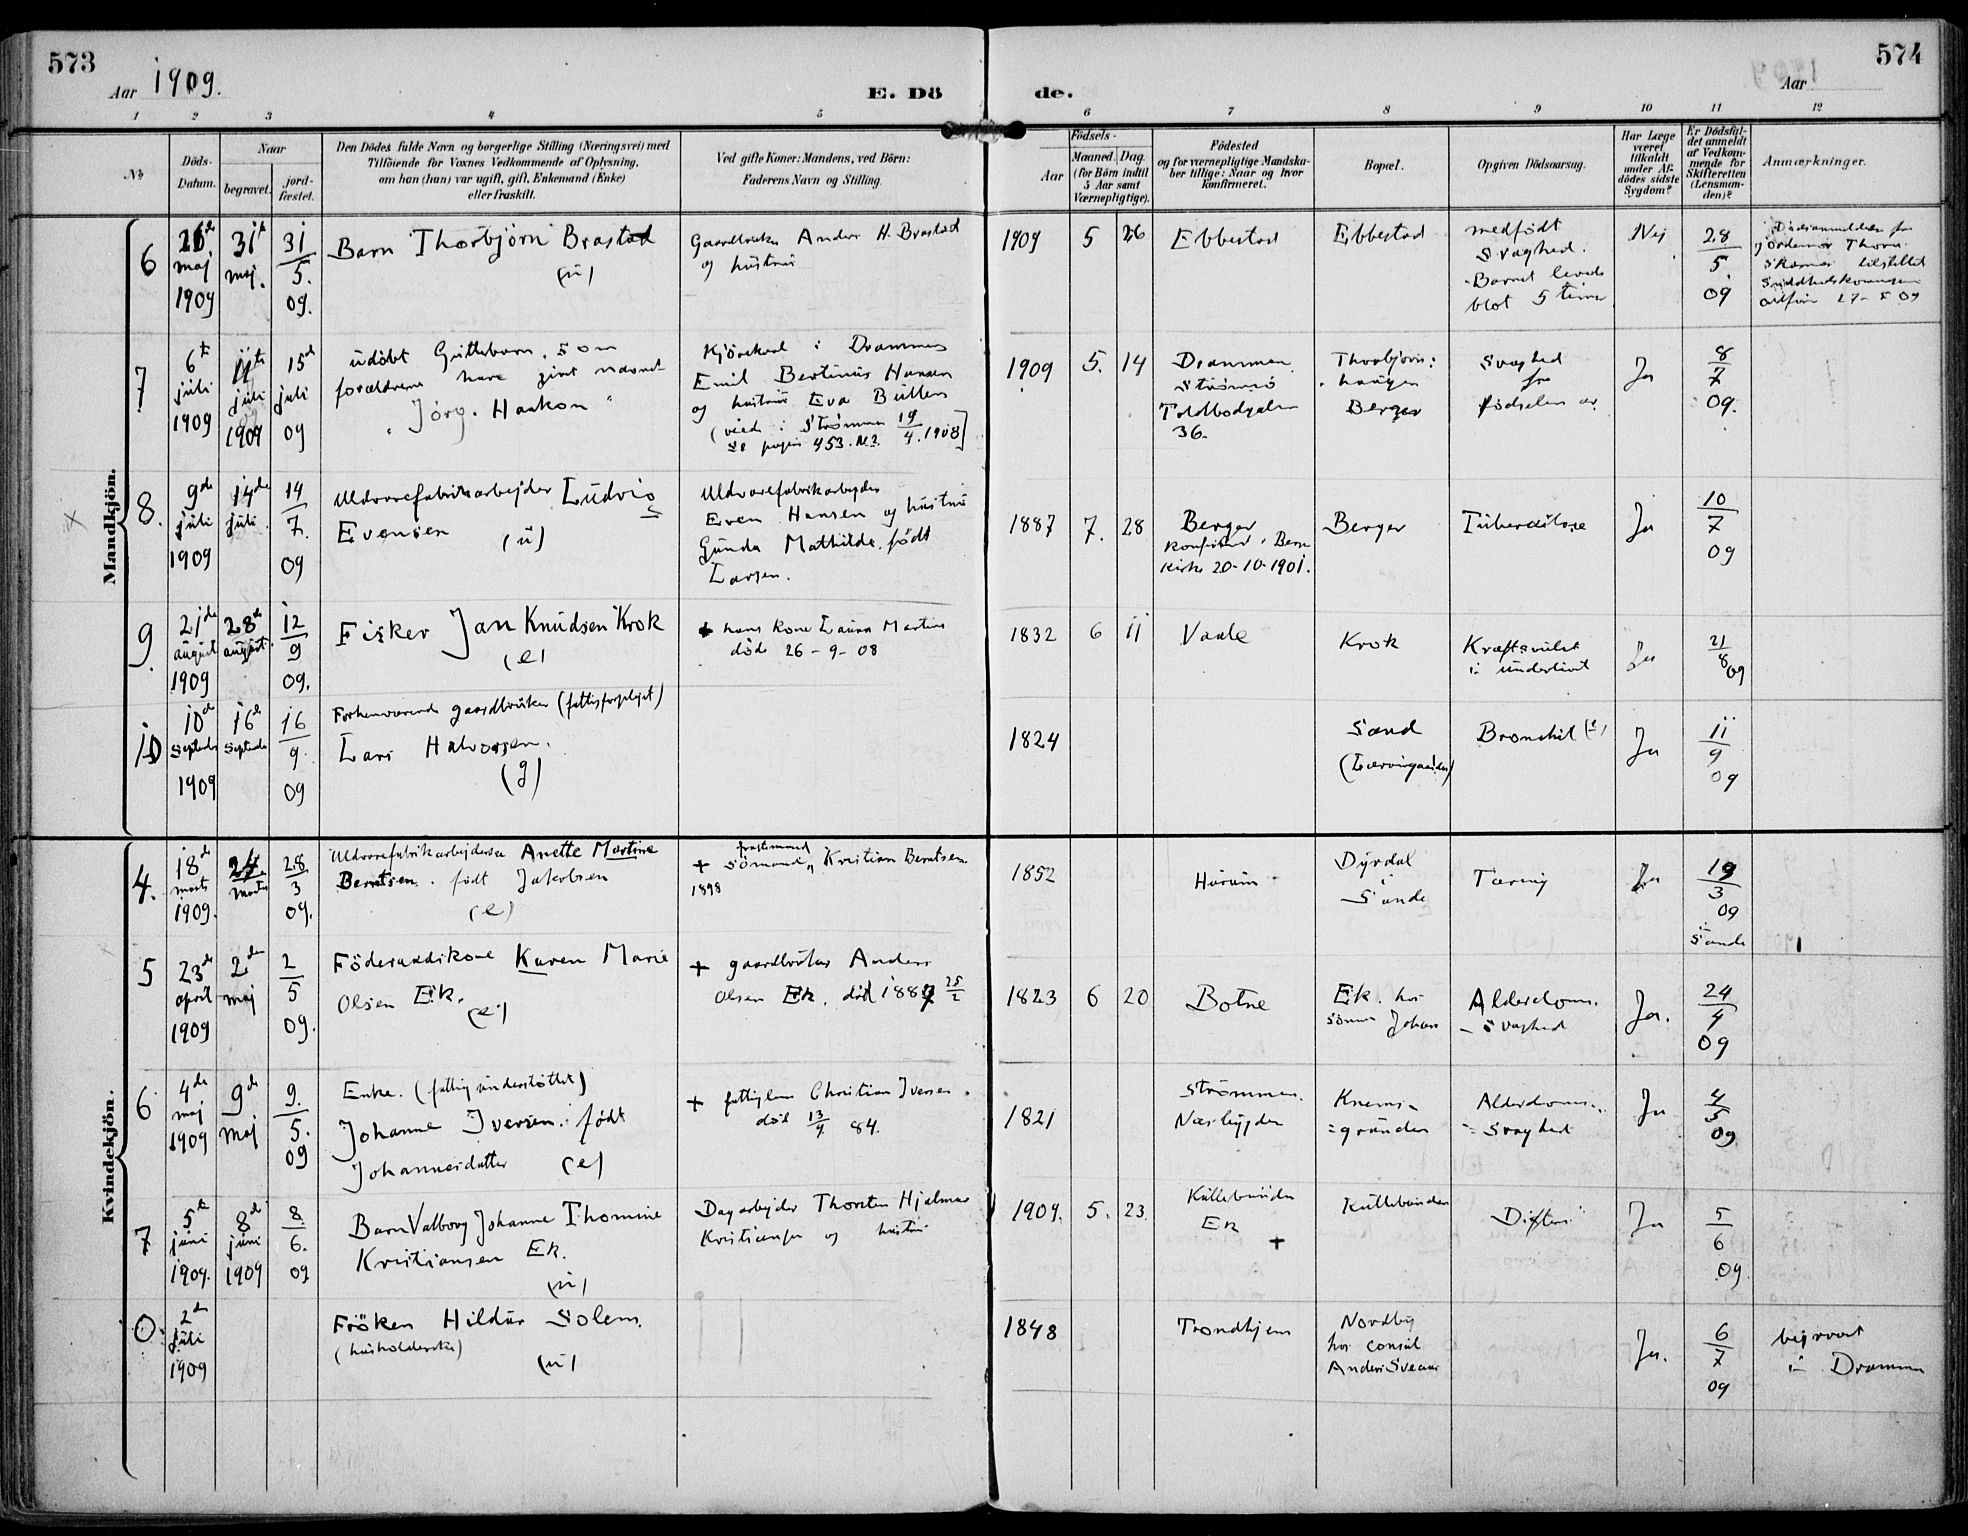 573
Aar 1909.
E. Dö
de.
574
Aar
1 2 3 4 5 6 7 8 9 10 11 12
No
Döds-
Datum.
Naar
begravet.
jord-
fæstet.
Den Dödes fulde Navn og borgerlige Stilling (Næringsvei) med
Tilföiende for Voxnes Vedkommende af Oplysning,
om han (hun) var ugift, gift, Enkemand (Enke)
eller fraskilt.
Ved gifte Koner: Mandens, ved Börn:
Faderens Navn og Stilling.
Födsels-
Aar
Maaned. Dag.
(for Börn indtil
5 Aar samt
Værnepligtige).
Födested
og for værnepligtige Mandska-
ber tillige: Naar og hvor
konfirmeret.
Bopæl.
Opgiven Dödsaarsag.
Har Læge
været
tilkaldt
under Af-
dödes sidste
Sygdom?
Er Dödsfal-
det anmeldt
af Vedkom-
mende for
Skifteretten
(Lensman-
den)?
Anmærkninger.
Mandkjön.
6
maj
1909
31
maj.
31
5.
09.
Barn Thorbjörn Brastad
(u)
Gaardbruker Anders H. Brastad
og hustru
1909 5 26
Ebbestad
Ebbestad
medfödt
Svaghed.
Barnet levede
blot 5 timer
Nej
28
5
09
7
6te
juli
1909
11te
juli
1909
15de
juli
09
udöbt Guttebarn, som
forældrene have givet navnet
"Jörg. Haakon"
Kjörekarl i Drammen
Emil Bertinus Hansen
og hustru Eva Bülten
(viede i Strömmen 19/4.1908)
1909 5. 14
Drammen
Strömsö
Toldbodgaten
36.
Thorbjörns:
haugen
Berger
Svaghed
fra
födselen av
Ja
8
7
09.
8.
9de
juli
1909
14de
juli
14
7.
09
Uldvarefabrikarbejder Ludvig
Evensen (u)
Uldvarefabrikarbejder
Even Hansen og hustru
Gunda Mathilde född
Larsen.
1887 7. 28
Berger
Kirke 20-10-1901.
Berger
Tuberculose
Ja
10
7
09
9
21de
august
1909
28de
august
12
9
09.
Fisker Jan Knudsen Krok
(e)
+ hans kone Laura Martine
döde 26-9-08
1832 6 11
Vaale
Krok
Kræftsvulst
i underlivet
Ja
21
8 09
10
10de
September
1909
16de
September
16
9.
09
Forhenværende gaardbruker (fattigforpleiet)
Lars Halvorsen.
(g)
1824
Sand
Bronchit
Ja
11
9
09
Kvindekjön.
4.
18de
marts
1909.
marts
28
3
09.
Uldvarefabrikarbejderske Anette Martine
Berntsen. född Jakobsen
(e)
+ Sömand Kristian Berntsen
1898
1852
Hurum
Dyrdal
i
Sande
Tæring
Ja
19
3
09
i
Sande
5
23de
april
1909
2den
maj
2
5
09.
Föderaadskone Karen Marie
Olsen Eik.
(e)
+ gaardbruker Anders
Olsen Eik. död 1889 25/2
1823 6 20
Botne
Eik. hos
sönnen Johan
Alderdoms-
- svaghed
Ja.
24
4
09
6
4de
maj
1909
9de
maj
9.
5.
09
Enke. (fattigunderstöttet)
Johanne Iversen. född
Johannesdatter (e)
+ fattiglem Christian Iversen.
död 13/4 84.
1821
Strömmen.
Nesbygden
Knems-
=grænden
Alderdoms-
= svaghed
Ja
4
5
09
7
5te
juni
1909.
8de
juni
1909
8
6.
09
Barn Valborg Johanne Thomine
Kristiansen Ek.
(u)
Dagarbejder Thorsten Hjalmar
Kristiansen og hustru
1909. 5. 23.
Kullebunden
Ek
+
Kullebunden
Difteri
Ja
5
6
09.
0
2den
juli
1909
Fröken Hildur Solem.
(husholderske)
(u)
1848
Trondhjem
Nordby
hos consul
Anders Sveaas
Ja.
6
7
09
begravet
i Drammen